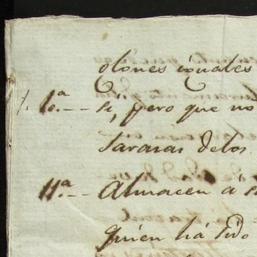 olones iguales
10.ª -- se, pero que no
tararas delos
11.ª -- Almacen à s
quien há sido